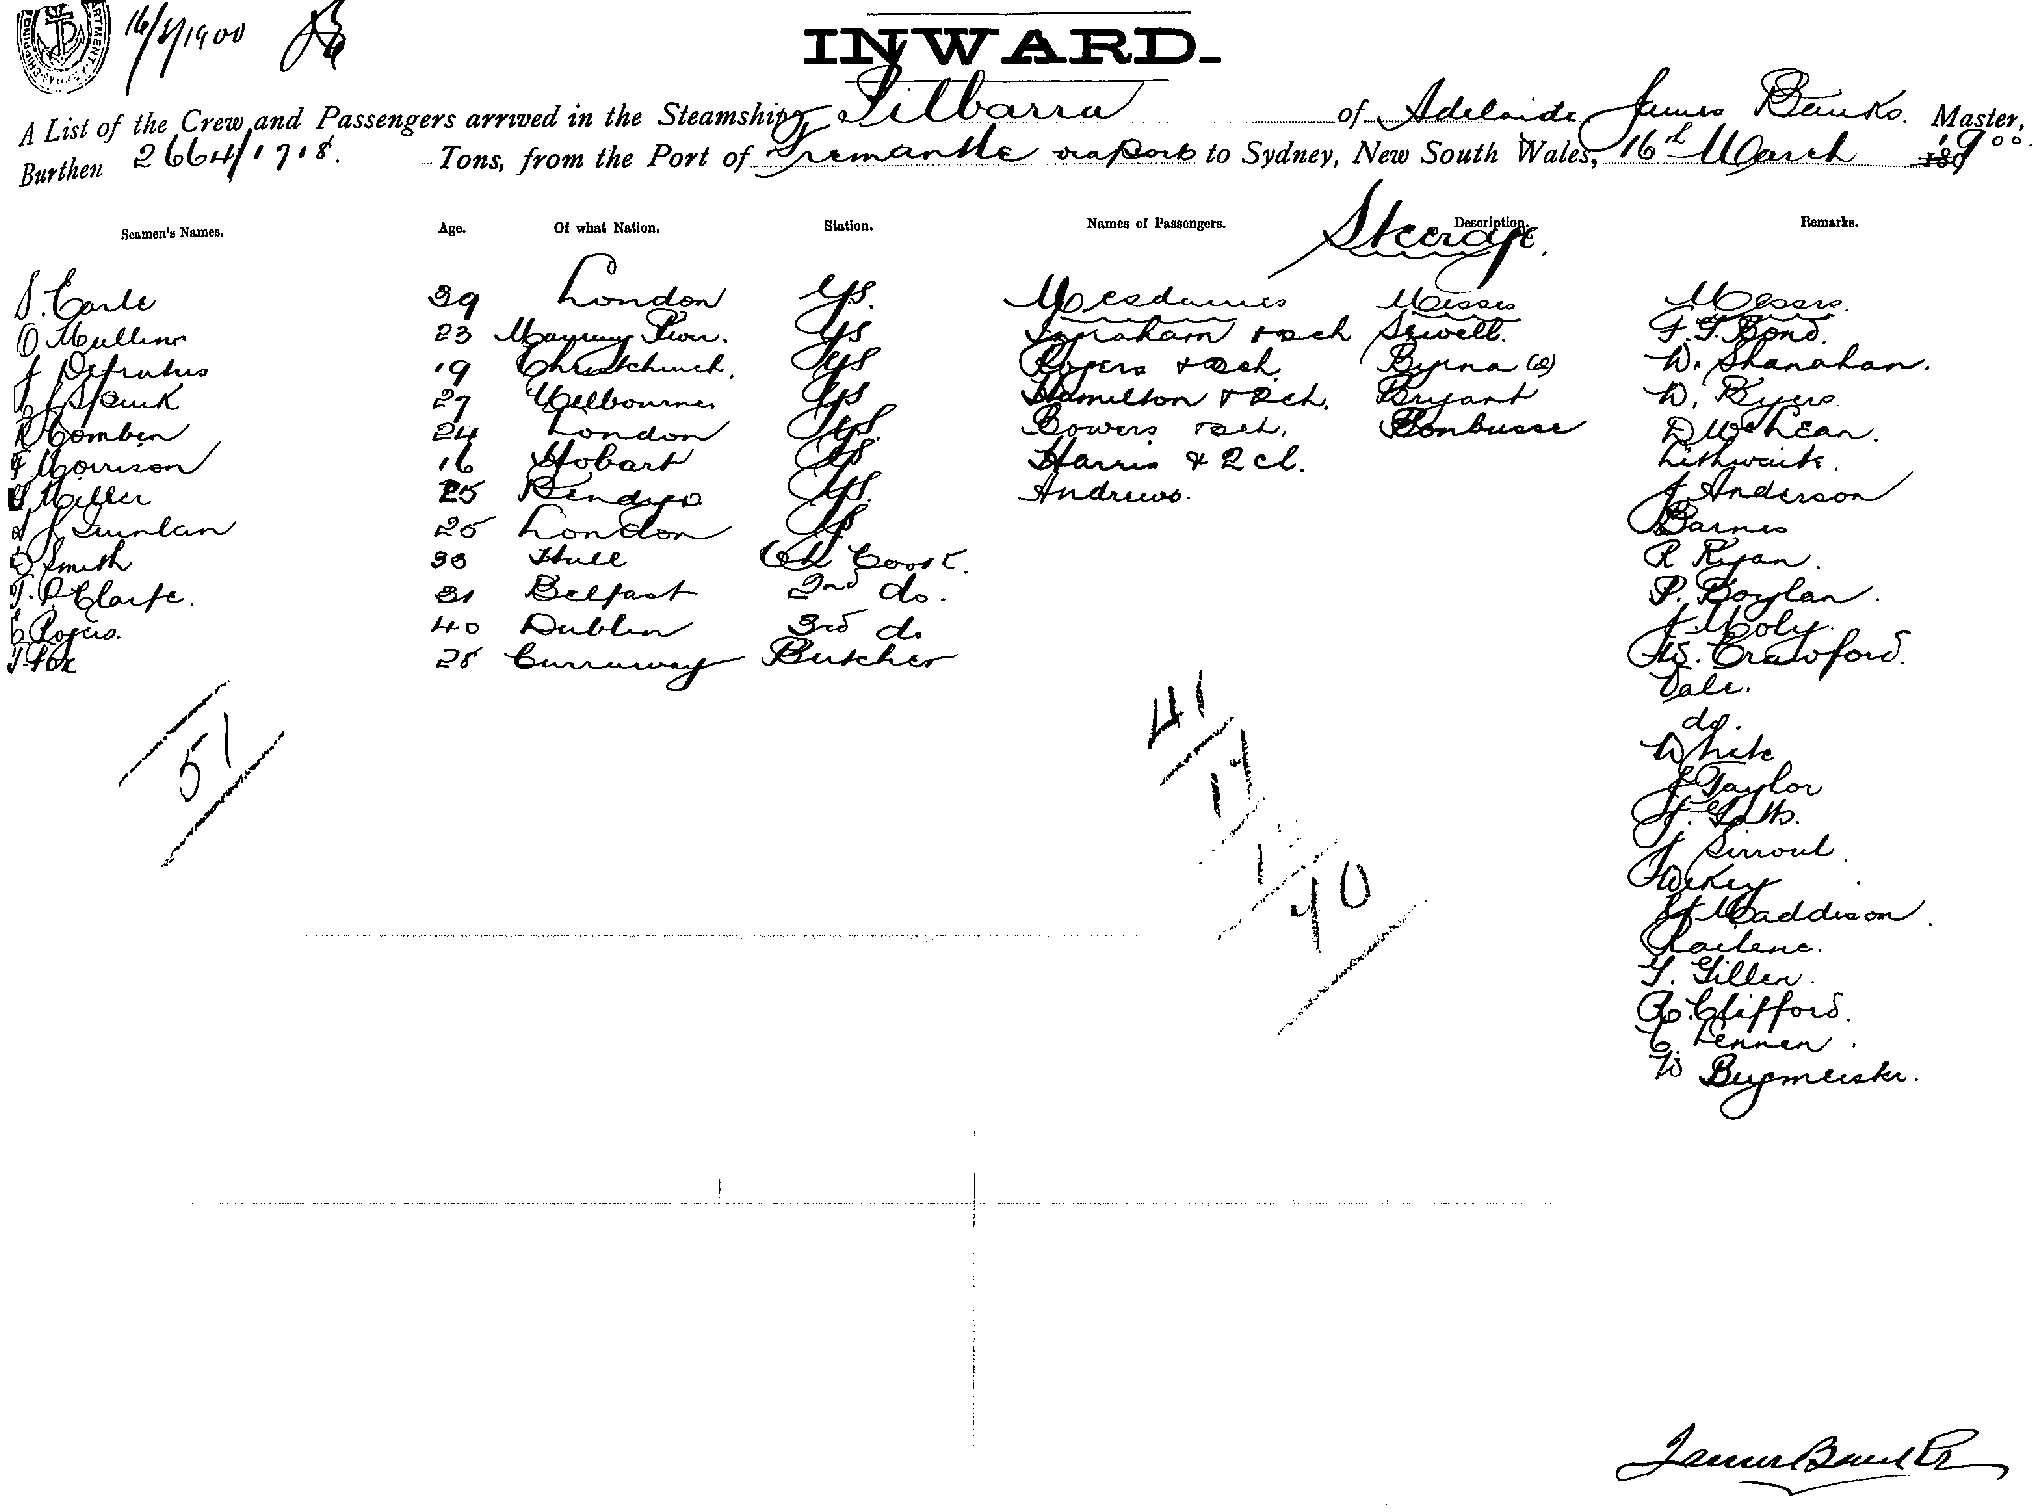 16/3/1900
INWARD.
A List of the Crew and Passengers arrived in the Steamship Pilbarra of Adelaide James Banks Master,
Burthen 2664/1718. Tons, from the Port of Fremantle via ports to Sydney, New South Wales, 16th March 1900
Steerage.
Seamen's Names. Age. Of what Nation. Station. Names of Passengers. Description. Remarks.
S. Earle 39 London G.S. Mesdames Misses Messrs.
O Mullins 23 GS Ingraham & ch Sewell. F. G. Bond.
J 19 Christchurch. GS Rogers & ch. Byrna (2) W. Shanahan.
27 Melbourne GS Hamilton & 2 ch. Bryant W. Byers
R Comben 24 London GS. Bowers & ch. D McLean.
F Morrison 16 Hobart GS Harris & 2 ch. Lithwaite.
Miller 25 Bendigo GS. Andrews. J Anderson
J Quinlan 25 London GS Barnes
Smith 33 Hull Ch Cook. R Ryan.
T. P. Clarke. 31 Belfast 2nd do. P. Boylan.
C Rogers. 40 Dublin 3rd do J. Moly.
T Fox 28 Butcher W. Crawford.
Dale.
do.
White
51
41
J Taylor
17
J.
J
1
W Key
70
Maddison.
G. Gillen.
R. Clifford.
C. Lennen.
W
James Banks